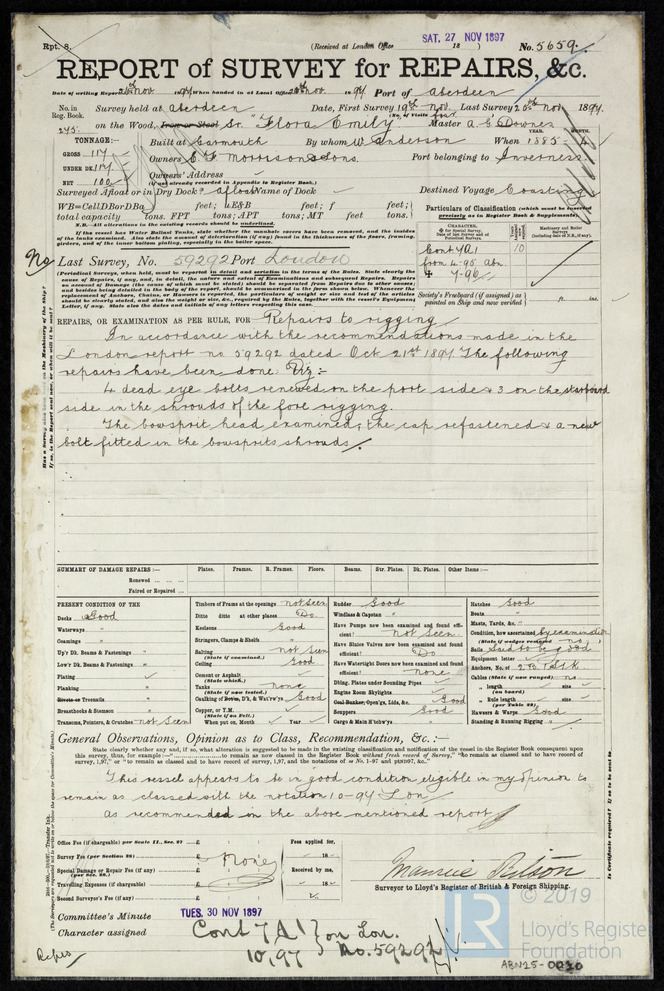 Rpt. 8.
(Received at London Office SAT. 27 NOV 1897 18 )
No. 5659.
REPORT of SURVEY for REPAIRS, &c.
Date of writing Report 26th Nov. 1897 When handed in at Local Office Nov. 1897 Port of Aberdeen
No. in Reg. Book. Survey held at Aberdeen Date, First Survey 19th Nov. Last Survey Nov 1897
275 on the Wood, Iron or Steel Sr. "Flora Emily" (No. of Visits ) Master A. G. Downes
TONNAGE:— Built at Garmouth By whom W. Anderson When 1885 - 4
YEAR. MONTH.
GROSS 117 Owners C. F. Morrison & Sons. Port belonging to Inverness
UNDER DK 117 Owners' Address
NET 100 (if not already recorded in Appendix to Register Book.)
Surveyed Afloat or in Dry Dock? afloat Name of Dock Destined Voyage Coasting
WB=CellDBorDBa feet; uE&B feet; f feet;
total capacity tons. FPT tons; APT tons; MT feet tons.
N.B.—All alterations in the existing records should be underlined.
If the vessel has Water Ballast Tanks, state whether the manhole covers have been removed, and the insides
of the tanks examined. Also state the amount of deterioration (if any) found in the thicknesses of the floors, framing,
girders, and of the inner bottom plating, especially in the boiler space.
Particulars of Classification (which must be inserted
precisely as in Register Book & Supplements).
CHARACTER.
✠ for Special Survey.
Date of last Survey and of
Periodical Surveys.
Machinery and Boiler
Surveys
(including date of N.B., if any).
Cont 7A1 10
from 4-95 Abn
✠ 7-96
Society's Freeboard (if assigned) as
painted on Ship and now verified ft. ins.
No Last Survey, No. 59292 Port London
(Periodical Surveys, when held, must be reported in detail and seriatim in the terms of the Rules. State clearly the
cause of Repairs, if any, and, in detail, the nature and extent of Examinations and Repairs. Repairs
on account of Damage (the cause of which must be stated) should be separated from Repairs due to other causes;
and besides being detailed in the body of the report, should be summarized in the form shown below. Whenever the
replacement of Anchors, Chains, or Hawsers is reported, the particulars of weight or size and test of the articles
should be clearly stated, and also the weight or size, &c., required by the Rules, together with the vessel's Equipment
Letter, if any. State also the dates and initials of any letters respecting this case.)
REPAIRS, OR EXAMINATION AS PER RULE, FOR Repairs to rigging
In accordance with the recommendations made in the
London report no 59292 dated Oct 21st 1897 The following
repairs have been done. Viz:-
4 dead eye bolts renewed on the port side & 3 on the starboard
side in the shrouds of the fore rigging.
The bowsprit head examined, the cap refastened & a new
bolt fitted in the bowsprits shrouds.
SUMMARY OF DAMAGE REPAIRS:— Plates. Frames. R. Frames. Floors. Beams. Str. Plates. Dk. Plates. Other Items:—
Renewed
Faired or Repaired
PRESENT CONDITION OF THE
Decks Good
Waterways "
Coamings "
Up'r Dk. Beams & Fastenings "
Low'r Dk. Beams & Fastenings "
Plating
Planking "
Rivets or Treenails "
Breasthooks & Stemson "
Transoms, Pointers, & Crutches not seen
Timbers of Frame at the openings not seen
Ditto ditto at other places Do
Keelsons Good
Stringers, Clamps & Shelfs "
Salting (State if examined.) not seen
Ceiling Good
Cement or Asphalt (State which.)
Tanks (State if now tested.) none
Caulking of Bottm, D'k, & Wat'rw'ys Good
Copper, or Y.M. (State if on Felt.)
When put on, Month Year
Rudder Good
Windlass & Capstan "
Have Pumps now been examined and found effi-
cient? not seen
Have Sluice Valves now been examined and found
efficient? Do
Have Watertight Doors now been examined and found
efficient? none
Dbling. Plates under Sounding Pipes
Engine Room Skylights
Coal Bunker, Open'gs, Lids, &c. Good
Scuppers Good
Cargo & Main H'tchw'ys "
Hatches Good
Boats "
Masts, Yards, &c. "
Condition, how ascertained by examination
(State if wedges removed) no
Sails said to be good
Equipment letter
Anchors, No. of 2B 1S 1K
Cables (State if now ranged) no
" length size
(on board)
" Rule length size
(per Table 22)
Hawsers & Warps Good
Standing & Running Rigging "
General Observations, Opinion as to Class, Recommendation, &c.:—
State clearly whether any, and if so, what alteration is suggested to be made in the existing classification and notification of the vessel in the Register Book consequent upon
this survey, thus, for example:—" to remain as now classed in the Register Book without fresh record of Survey," "to remain as classed and to have record of
survey, 1,97," or "to remain as classed and to have record of survey, 1,97, and the notations of ss No. 1-97 and ptND97, &c."
This vessel appears to be in good condition eligible in my opinion to
remain as classed with the notation 10-97 Lon
as recommended in the above mentioned report
Office Fee (if chargeable) per Scale II., Sec. 27 £
Survey Fee (per Section 28) £
Special Damage or Repair Fee (if any) £
(per Sec. 28.)
Travelling Expenses (if chargeable) £
Second Surveyor's Fee (if any) £
None
Fees applied for,
18
Received by me,
18
Surveyor to Lloyd's Register of British & Foreign Shipping.
Committee's Minute TUES. 30 NOV 1897
Character assigned Cont 7A1 } on Lon.
10,97 } No. 59292
© 2019
LR
Lloyd's Register
Foundation
ABN25-0020